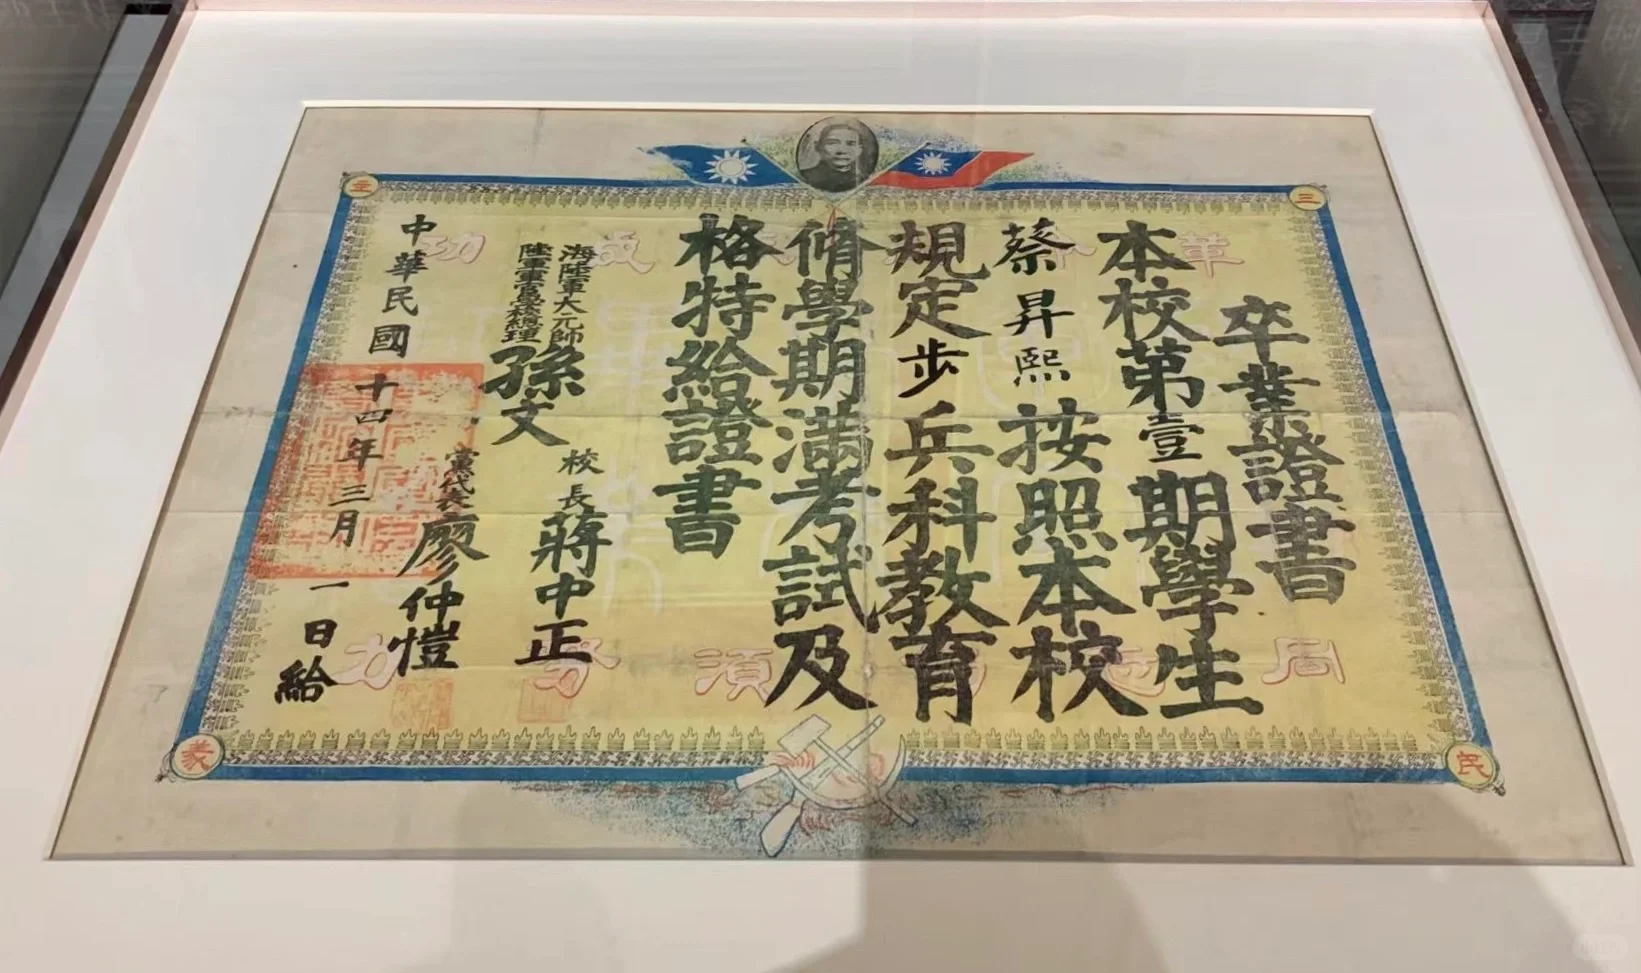 三民主義
卒業證書
本校第壹期學生
蔡昇熙按照本校
規定步兵科教育
脩學期滿考試及
格特給證書
海陸軍大元帥
陸軍軍官學校總理
孫文
校長蔣中正
黨代表廖仲愷
中華民國十四年三月一日給
革 成功
同志 須努力